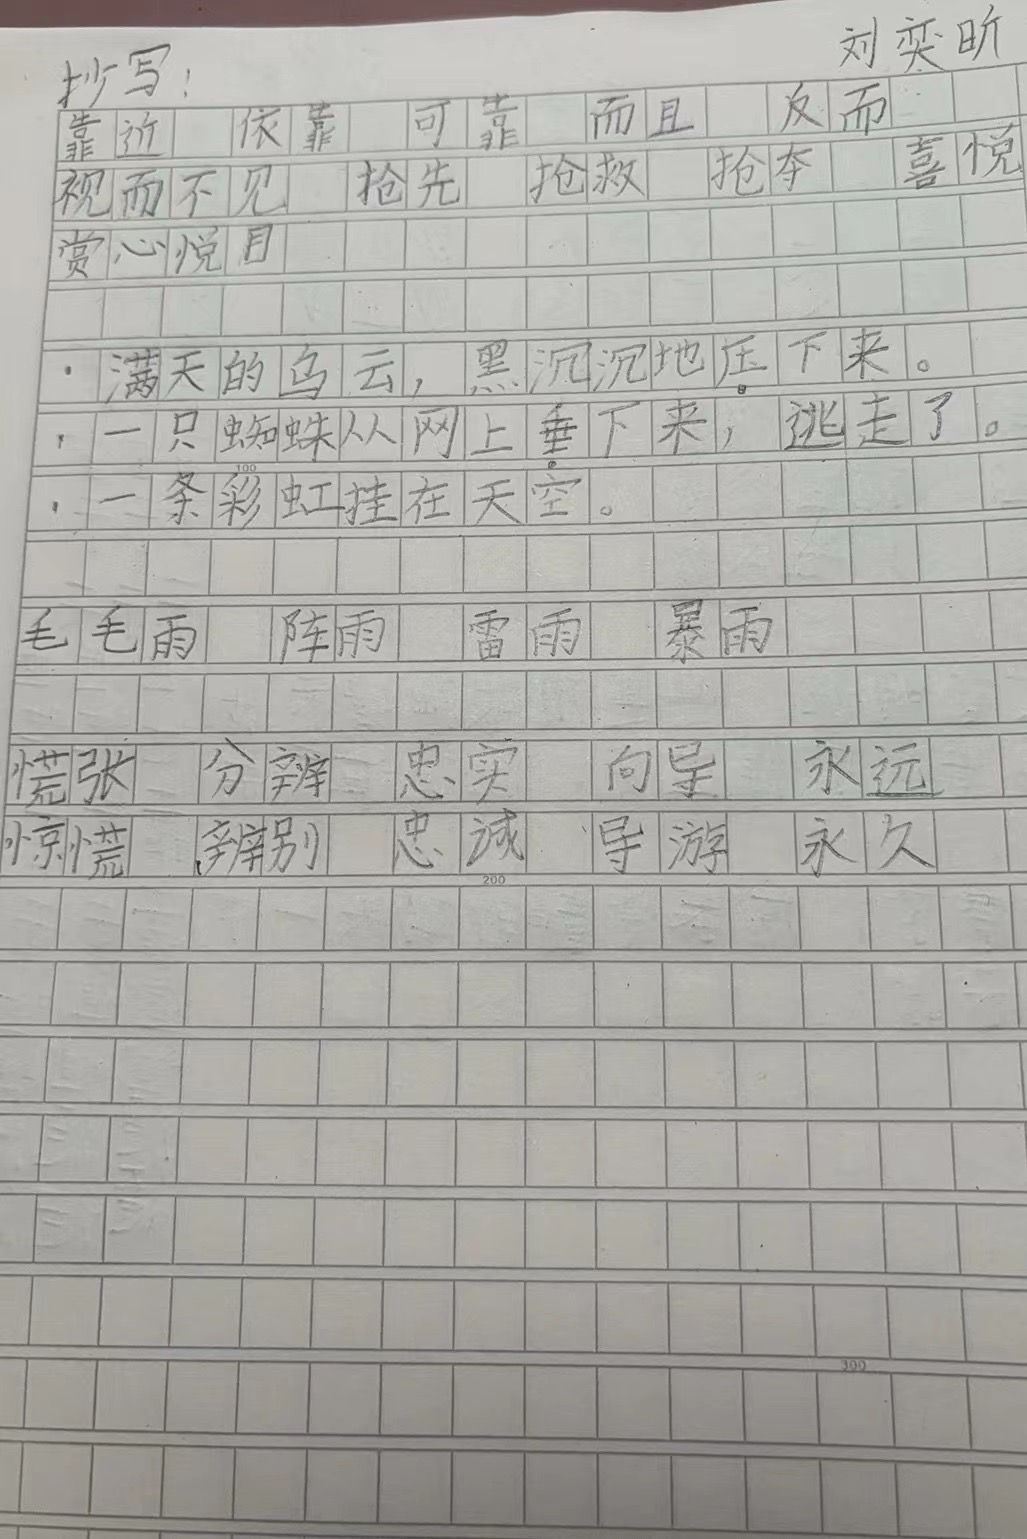 刘奕昕
抄写:
靠近 依靠 可靠 而且 反而
视而不见 抢先 抢救 抢夺 喜悦
赏心悦目
·满天的乌云,黑沉沉地压下来。
·一只蜘蛛从网上垂下来,逃走了。
100
·一条彩虹挂在天空。
毛毛雨 阵雨 雷雨 暴雨
慌张 分辨 忠实 向导 永远
惊慌 辨别 忠诚 导游 永久
200
300